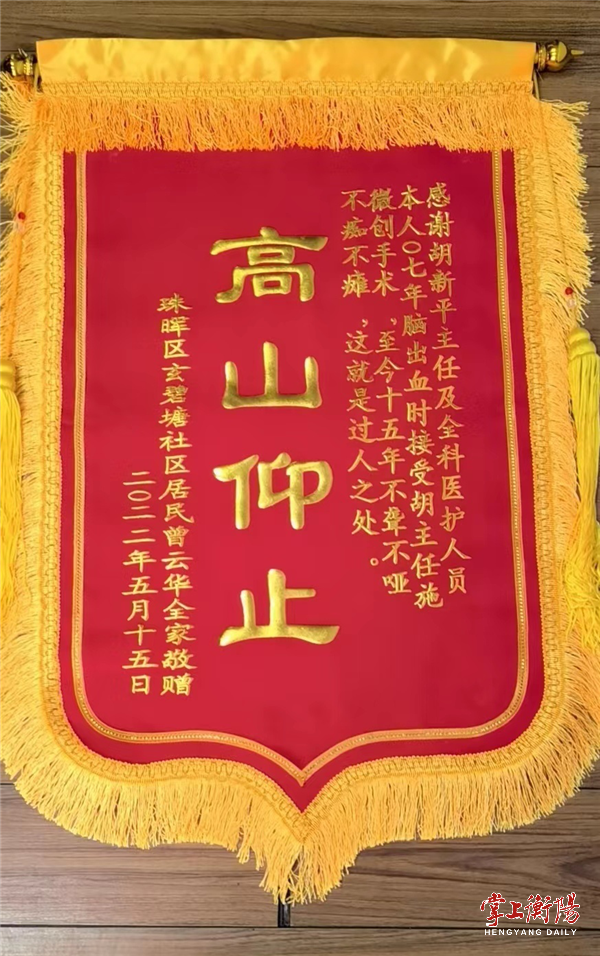 感谢胡新平主任及全科医护人员
本人〇七年脑出血时接受胡主任施
微创手术,至今十五年不聋不哑
不痴不瘫,这就是过人之处。
高山仰止
珠晖区玄碧塘社区居民曾云华全家敬赠
二〇二二年五月十五日
掌上衡陽
HENGYANG DAILY